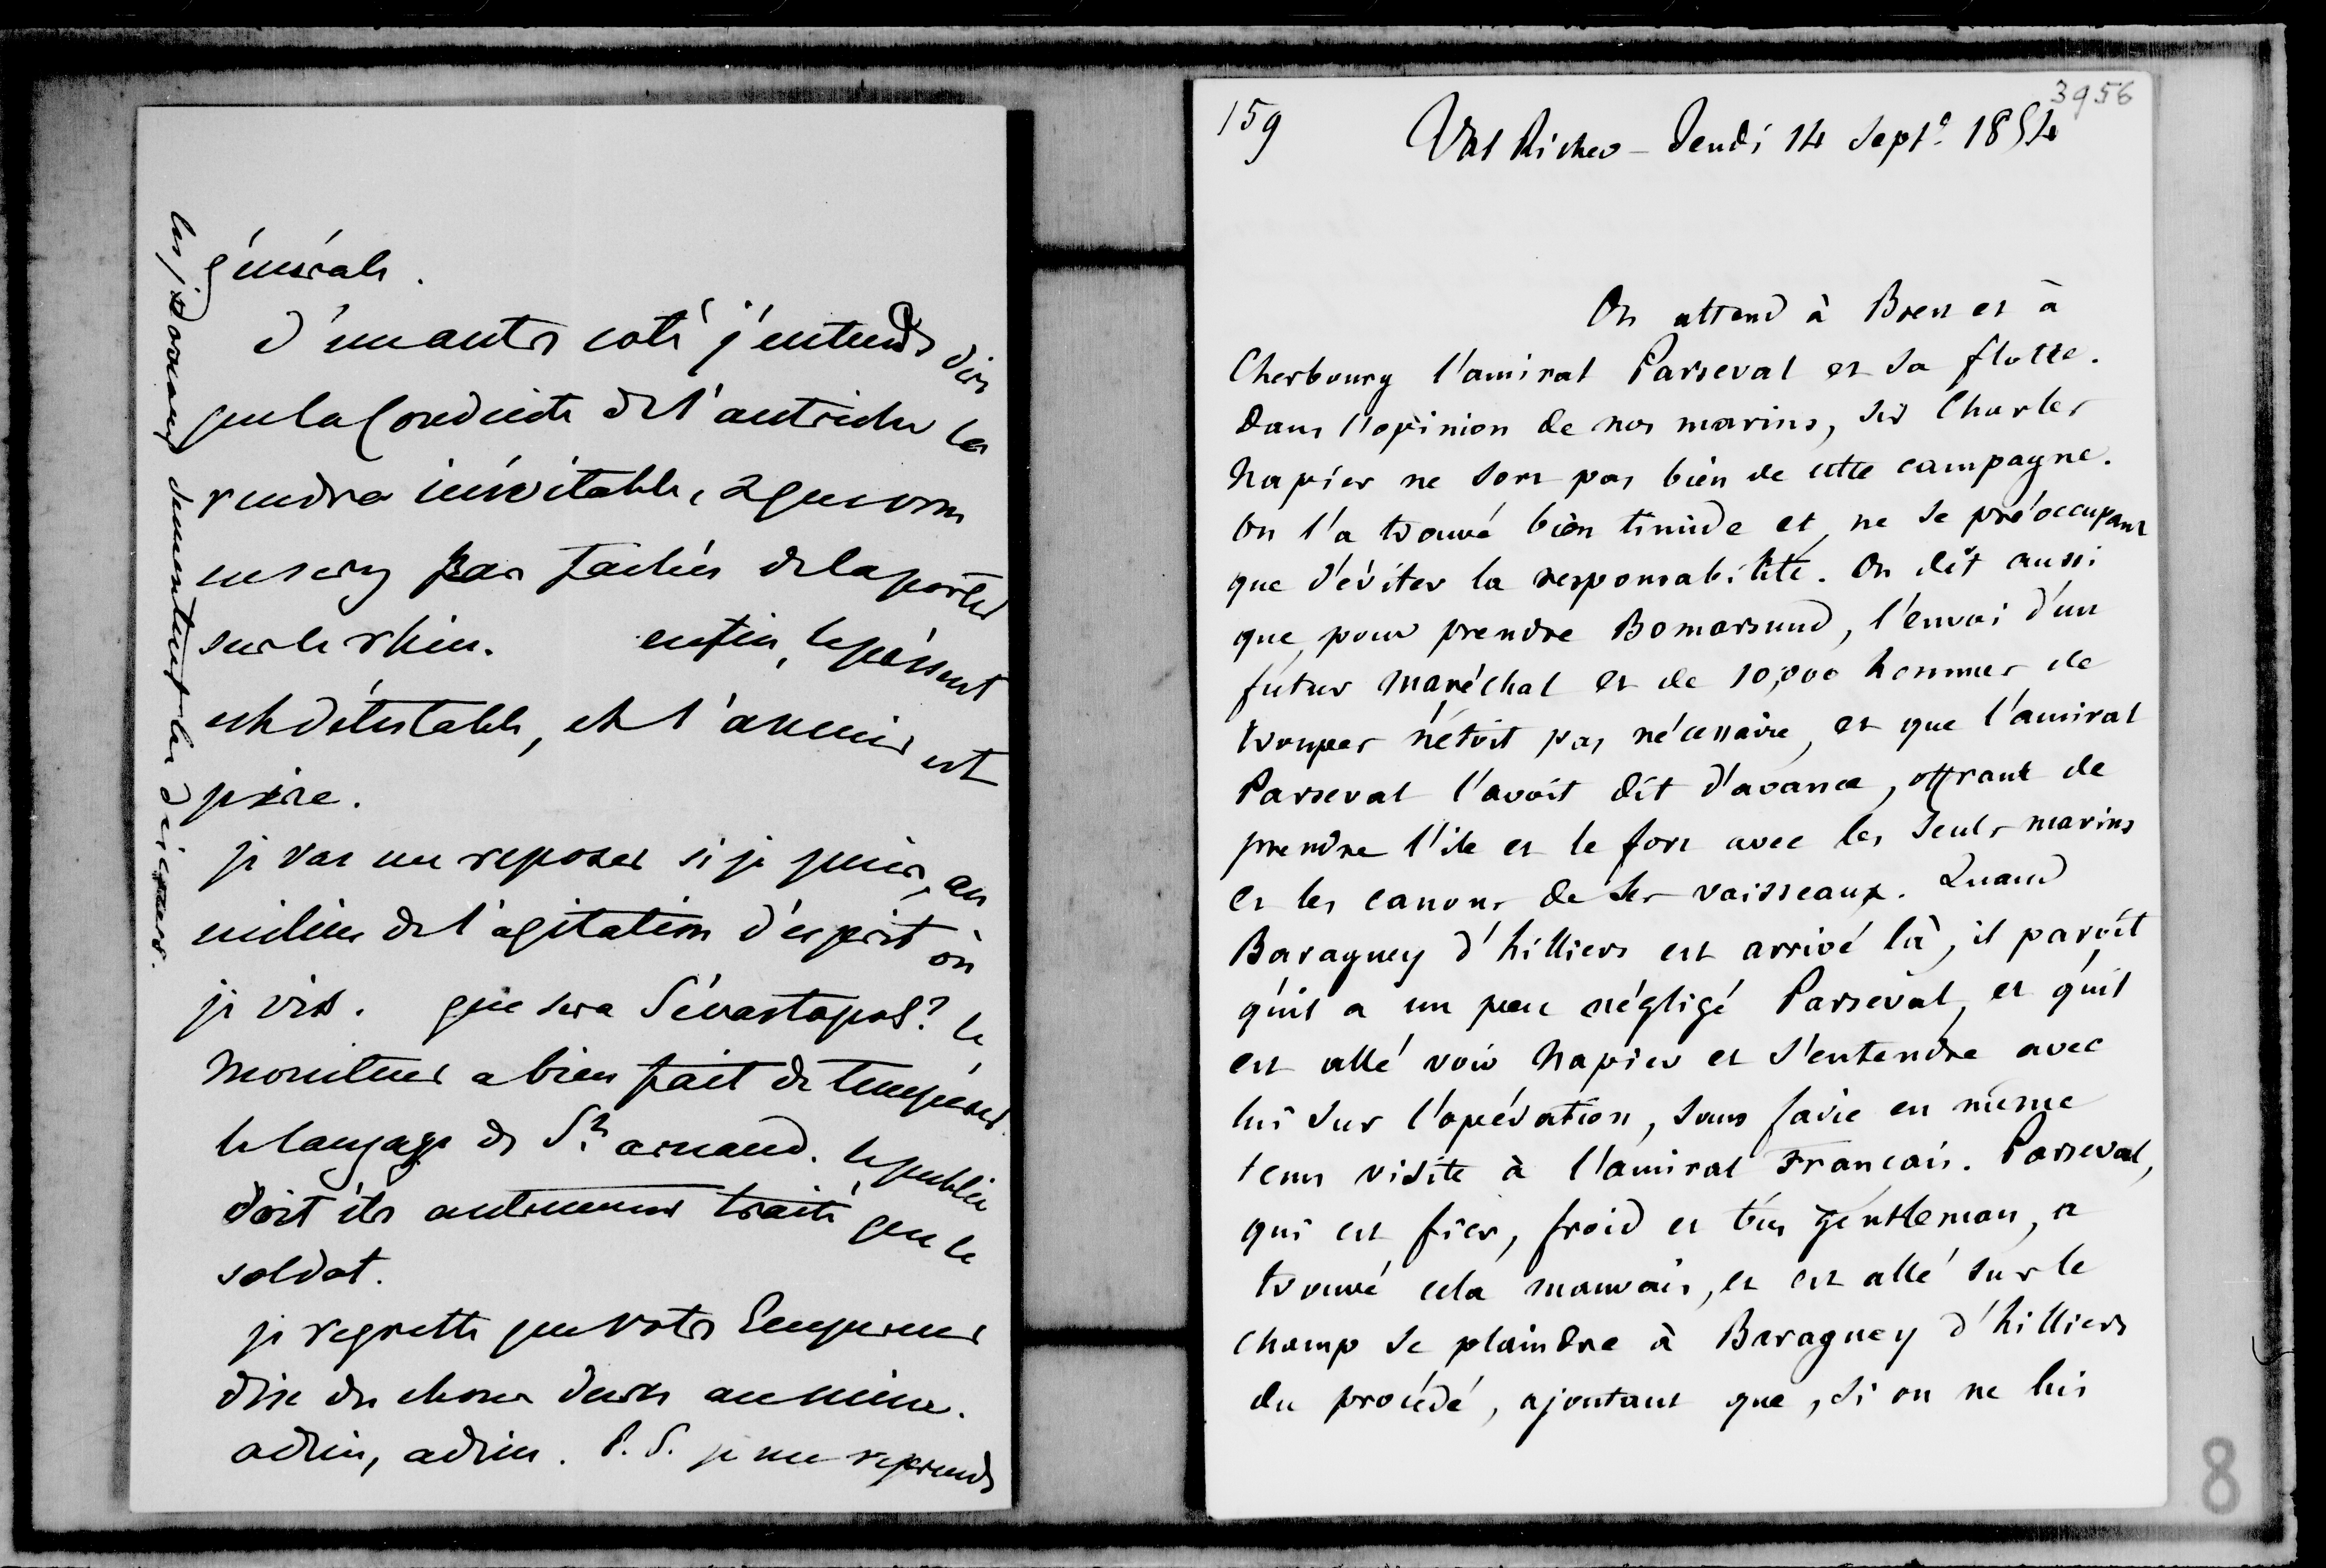 générale.
d'un autre coté j'entends dire
que la Conduite de l'autriche la
rendra inévitable, & que vous
ne serez pas fachés de la porter
sur le rhin. enfin, le présent
est détestable, et l'avenir est
pire.
je vas me reposer si je puis, au
milieu de l'agitation d'esprit où
je vis. que sera Sévastopol? le
Moniteur a bien fait de tempérer
le langage de St arnaud. le public
doit être autrement traité que le
soldat.
je regrette que votre Empereur
dise des choses dures au mien.
adieu, adieu. P.S. je me reprends
les journaux
159
3956
Val Richer - Jeudi 14 Septe 1854
On attend à Brest et à
Cherbourg l'amiral Parseval et sa flotte.
Dans l'opinion de nos marins, Sir Charles
Napier ne sort pas bien de cette campagne.
On l'a trouvé bien timide et ne se préoccupant
que d'éviter la responsabilité. On dit aussi
que, pour prendre Bomarsund, l'envoi d'un
futur Maréchal et de 10,000 hommes de
troupes n'étoit pas nécessaire, et que l'amiral
Parseval l'avoit dit d'avance, offrant de
prendre l'île et le fort avec les seuls marins
et les canons de ses vaisseaux. Quand
Baraguey d'hilliers est arrivé là, il paroît
qu'il a un peu négligé Parseval, et qu'il
est allé voir Napier et s'entendre avec
lui sur l'opération, sans faire en même
tems visite à l'amiral Français. Parseval,
qui est fier, froid et très gentleman, a
trouvé cela mauvais, et est allé sur le
champ se plaindre à Baraguey d'hilliers
du procédé, ajoutant que, si on ne lui
8